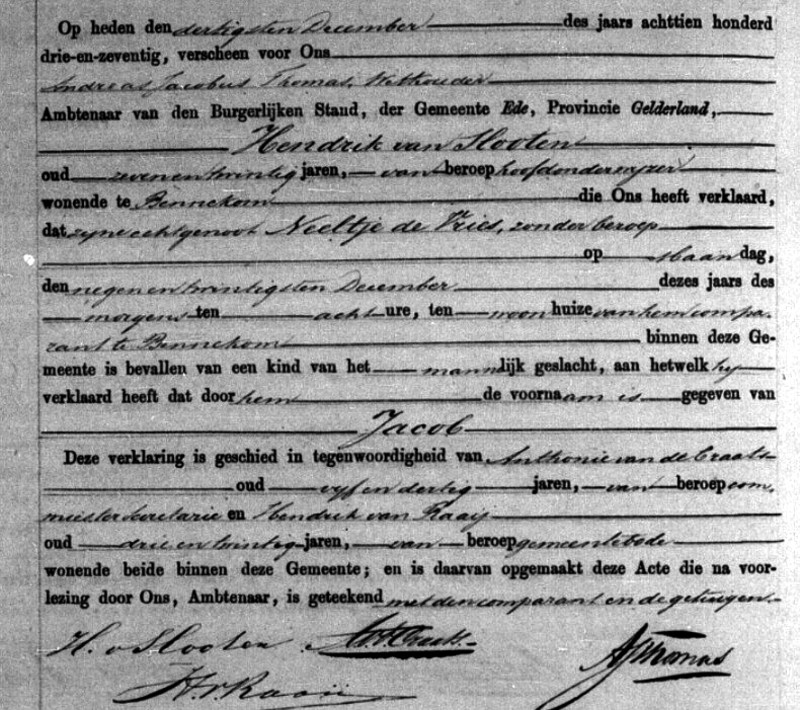 Op heden den dertigsten December des jaars achttien honderd
drie-en-zeventig, verscheen voor Ons
Andreas Jacobus Thomas, Wethouder
Ambtenaar van den Burgerlijken Stand, der Gemeente Ede, Provincie Gelderland,
Hendrik van Slooten
oud zeven en twintig jaren, van beroep hoofdonderwyzer
wonende te Bennekom die Ons heeft verklaard,
dat zyne echtgenoot Neeltje de Vries, zonder beroep
op Maandag,
den negen en twintigsten December dezes jaars des
morgens ten acht ure, ten woonhuize van hem compa-
rant te Bennekom binnen deze Ge-
meente is bevallen van een kind van het mannlijk geslacht, aan hetwelk hy
verklaard heeft dat door hem de voornaam is gegeven van
Jacob
Deze verklaring is geschied in tegenwoordigheid van Anthonie van de Craats
oud vyf en dertig jaren, van beroep com,
meister Secretarie en Hendrik van Raaij
oud drie en twintig jaren, van beroep gemeentebode
wonende beide binnen deze Gemeente; en is daarvan opgemaakt deze Acte die na voor-
lezing door Ons, Ambtenaar, is geteekend met den comparant en de getuigen.
H. v Slooten AvdCraats AJThomas
H.v.Raaij